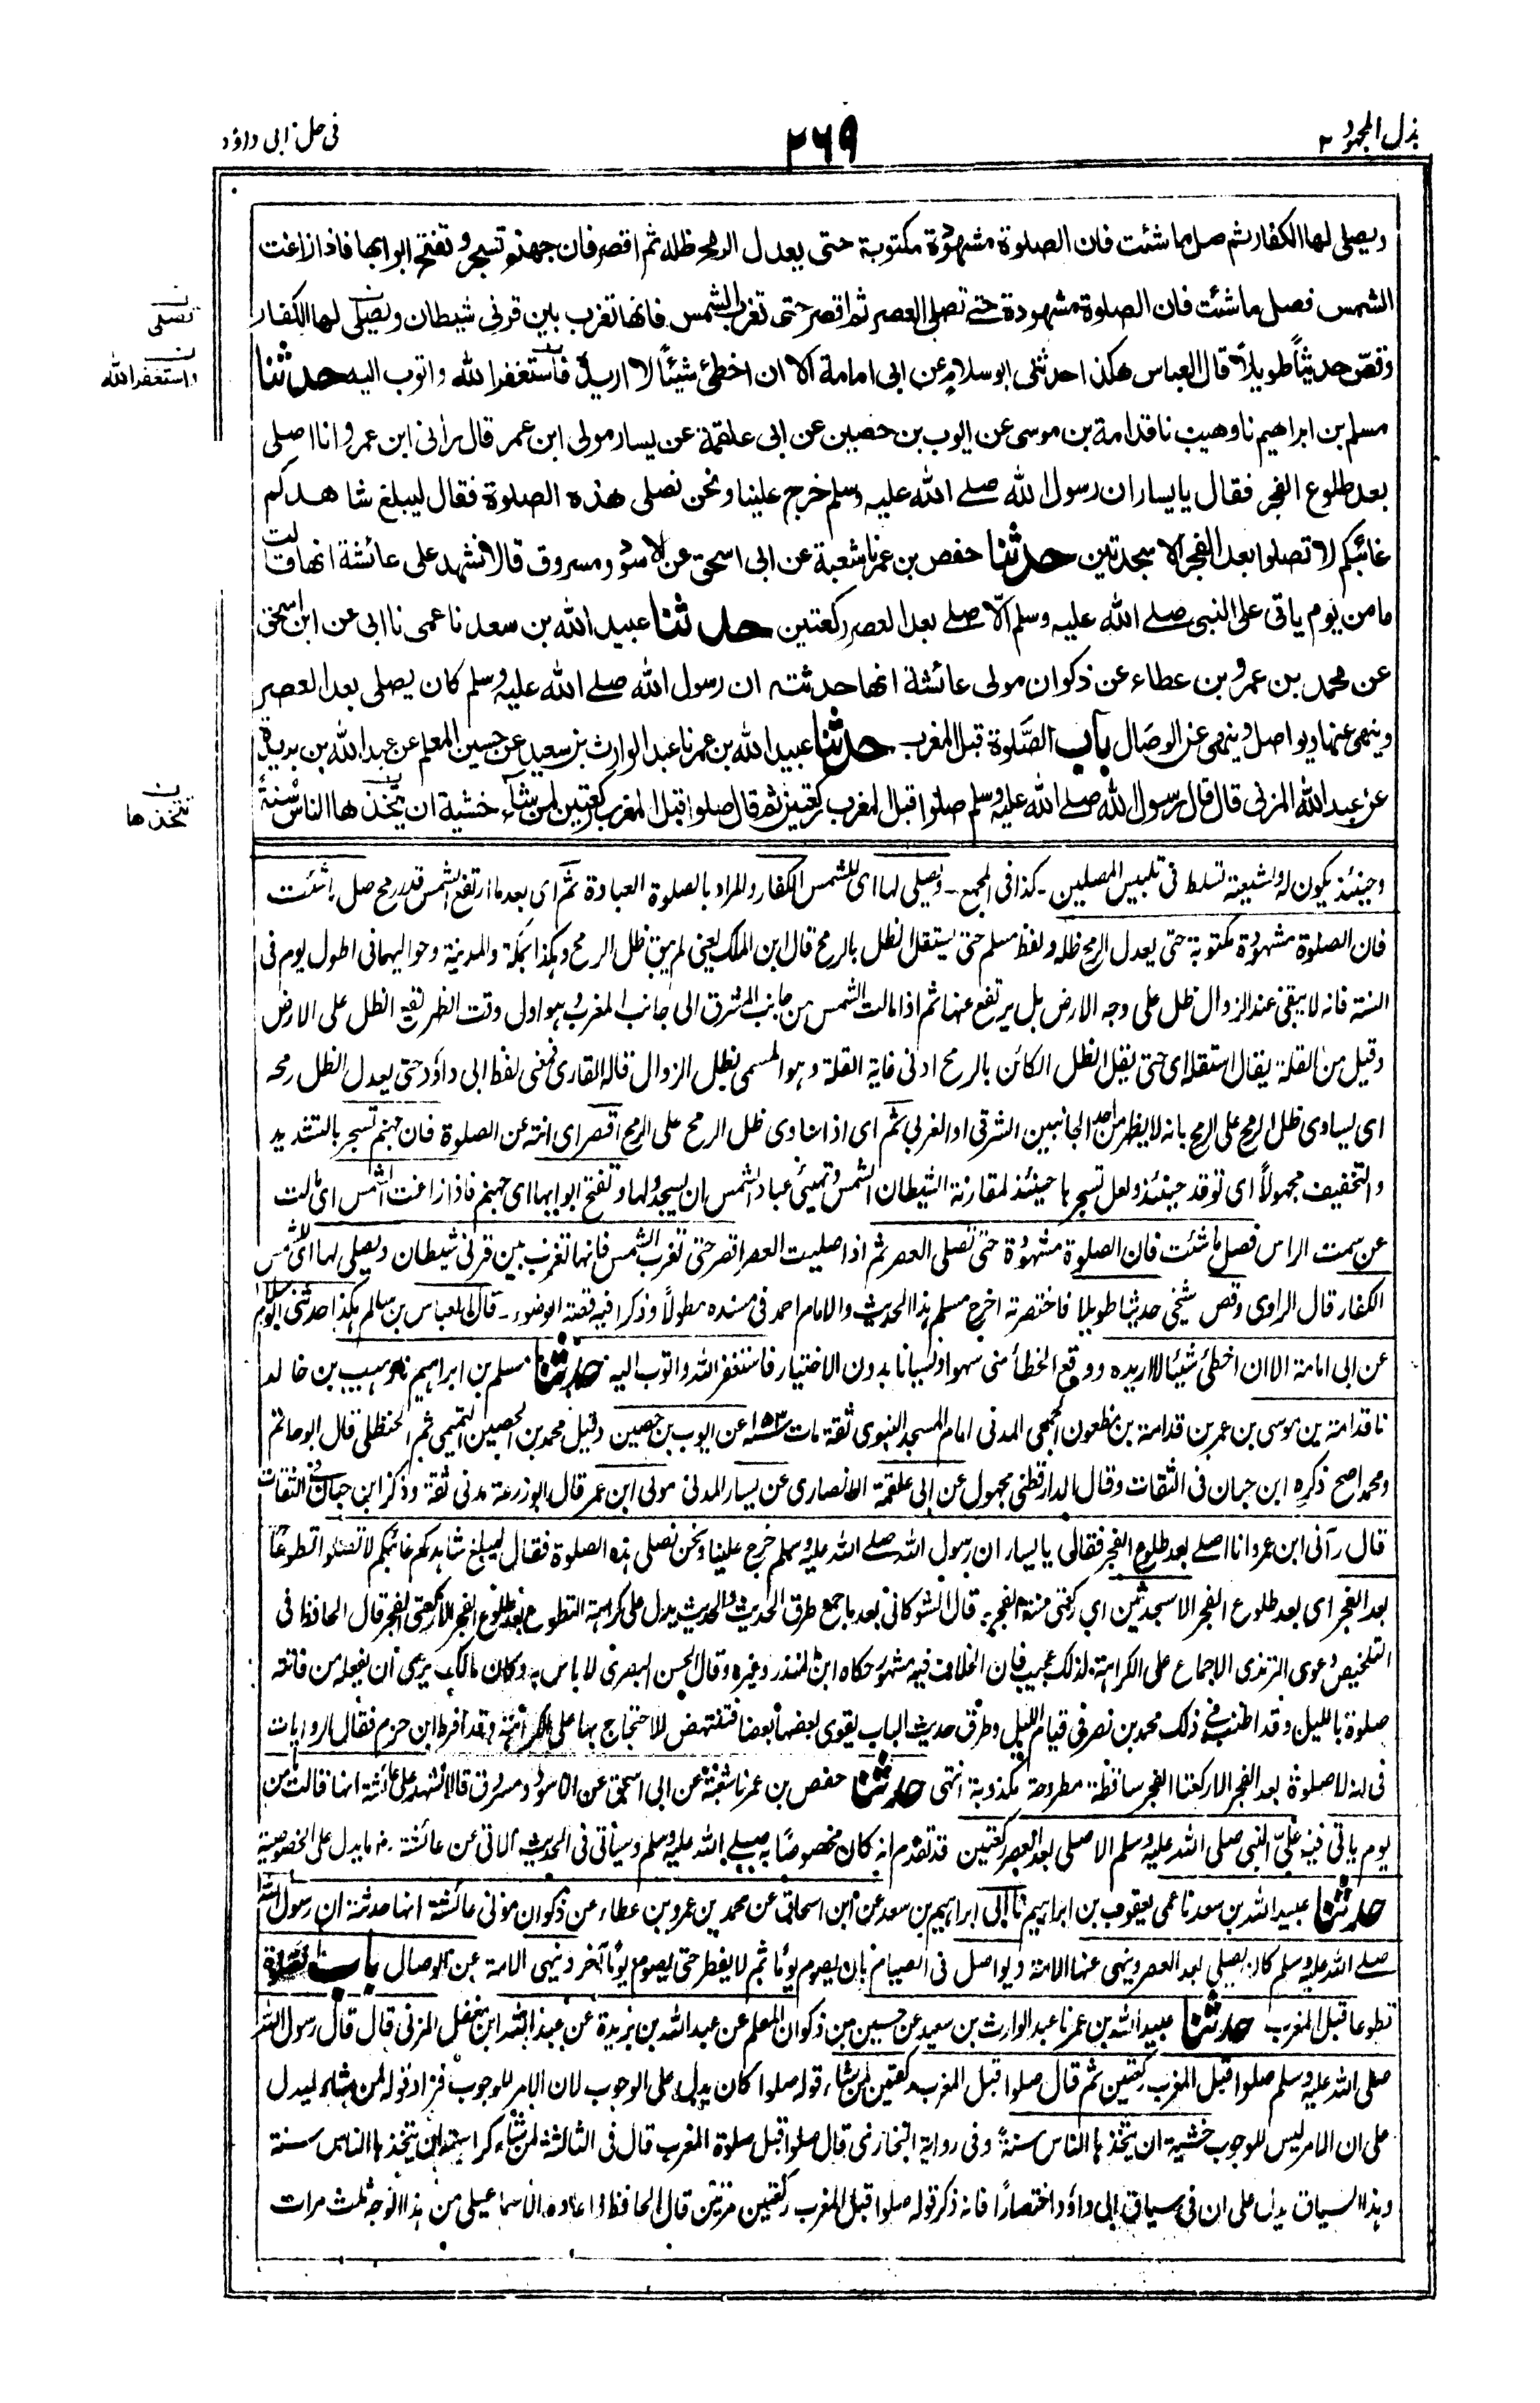 بذل المجهود ٢
٢٦٩
فى حل ابى داؤد
ويصلى لها الكفار ثم صل ما شئت فان الصلوة مشهودة مكتوبة حتى يعدل الرمح ظله ثم اقصر فان جهنم تسجر وتفتح ابوابها فاذا زاغت
الشمس فصل ما شئت فان الصلوة مشهودة حتى تصلى العصر ثم اقصر حتى تغرب الشمس فانها تغرب بين قرنى شيطان ويصلى لها الكفار
وقصّ حديثاً طويلاً قال العباس هكذا حدثنى ابو سلام عن ابى امامة الا ان اخطئ شيئاً لا اريده فأستغفر الله واتوب اليه حدثنا
مسلم بن ابراهيم نا وهيب نا قدامة بن موسى عن ايوب بن حصين عن ابى علقمة عن يسار مولى ابن عمر قال رأنى ابن عمر وانا اصلى
بعد طلوع الفجر فقال يا يسار ان رسول الله صلے الله عليه وسلم خرج علينا ونحن نصلى هذه الصلوة فقال ليبلغ شاهدكم
غائبكم لا تصلوا بعد الفجر الا سجدتين حدثنا حفص بن عمر نا شعبة عن ابى اسحق عن الاسود ومسروق قالا نشهد على عائشة انها قالت
ما من يوم ياتى على النبى صلے الله عليه وسلم الّا صلے بعد العصر ركعتين حدثنا عبيد الله بن سعد نا عمى نا ابى عن ابن اسحق
عن محمد بن عمرو بن عطاء عن ذكوان مولى عائشة انها حدثته ان رسول الله صلے الله عليه وسلم كان يصلى بعد العصر
وينهى عنها ويواصل وينهى عن الوصال باب الصَّلوة قبل المغرب حدثنا عبيد الله بن عمر نا عبد الوارث بن سعيد عن حسين المعلم عن عبد الله بن بريدة
عن عبد الله المزنى قال قال رسول الله صلے الله عليه وسلم صلوا قبل المغرب ركعتين ثم قال صلوا قبل المغرب ركعتين لمن شآء خشية ان يتخذها الناس سنةً
تصلى
واستغفر الله
تتخذها
وحينئذ يكون له ولشيعته تسلط فى تلبيس المصلين ۔ كذا فى المجمع ۔ ويصلى لها اى للشمس الكفار والمراد بالصلوة العبادة ثم اى بعد ما ارتفع الشمس قدر رمح صل ما شئت
فان الصلوة مشهودة مكتوبة حتى يعدل الرمح ظله ولفظ مسلم حتى يستقل الظل بالرمح قال ابن الملك يعنى لم يبق ظل الرمح وهكذا بمكة والمدينة وحواليهما فى اطول يوم فى
السنة فانه لا يبقى عند الزوال ظل على وجه الارض بل يرتفع عنها ثم اذا مالت الشمس من جانب المشرق الى جانب المغرب وهو اول وقت الظهر يقع الظل على الارض
وقيل من القلة يقال استقله اى حتى يقل الظل الكائن بالرمح ادنى غاية القلة وهو المسمى بظل الزوال قاله القارى فمعنى لفظ ابى داؤد حتى يعدل الظل رمحه
اى يساوى ظل الرمح على الرمح بانه لا يظهر من احد الجانبين الشرقى او الغربى ثم اى اذا تساوى ظل الرمح على الرمح اقصر اى انته عن الصلوة فان جهنم تسجر بالتشديد
والتخفيف مجهولاً اى توقد حينئذ ولعل تسجرها حينئذ لمقارنة الشيطان الشمس وتهيئ عباد الشمس ان يسجدوا لها وتفتح ابوابها اى جهنم فاذا زاغت الشمس اى مالت
عن سمت الراس فصل ما شئت فان الصلوة مشهودة حتى تصلى العصر ثم اذا صليت العصر اقصر حتى تغرب الشمس فانها تغرب بين قرنى شيطان ويصلى لها اى للشمس
الكفار قال الراوى وقص شيخى حديثا طويلا فاختصرته اخرج مسلم هذا الحديث والامام احمد فى مسنده مطولاً وذكرا فيه قصة الوضوء ۔ قال العباس بن سالم هكذا حدثنى ابو سلام
عن ابى امامة الا ان اخطئ شيئا لا اريده ووقع الخطأ منى سهوا ونسيانا بدون الاختيار فاستغفر الله واتوب اليه حدثنا مسلم بن ابراهيم نا وهيب بن خالد
نا قدامة بن موسى بن عمر بن قدامة بن مظعون الجمحى المدنى امام المسجد النبوى ثقة مات سنة ١٥٣ عن ايوب بن حصين وقيل محمد بن الحصين التميمى ثم الحنظلى قال ابو حاتم
ومحمد اصح ذكره ابن حبان فى الثقات وقال الدارقطنى مجهول عن ابى علقمة الانصارى عن يسار المدنى مولى ابن عمر قال ابو زرعة مدنى ثقة وذكر ابن حبان فى الثقات
قال رآنى ابن عمر وانا اصلے بعد طلوع الفجر فقال يا يسار ان رسول الله صلے الله عليه وسلم خرج علينا ونحن نصلى هذه الصلوة فقال ليبلغ شاهدكم غائبكم لا تصلوا تطوعاً
بعد الفجر اى بعد طلوع الفجر الا سجدتين اى ركعتى سنة الفجر قال الشوكانى بعد ما جمع طرق الحديث والحديث يدل على كراهة التطوع بعد طلوع الفجر الا ركعتى الفجر قال الحافظ فى
التلخيص دعوى الترمذى الاجماع على الكراهة لذلك عجيب فان الخلاف فيه مشهور حكاه ابن المنذر وغيره وقال الحسن البصرى لا باس به وكان مالك يرى ان يفعله من فاتته
صلوة بالليل وقد اطنب فى ذلك محمد بن نصر فى قيام الليل وطرق حديث الباب يقوى بعضها بعضا فتنتهض للاحتجاج بها على الكراهة وقد افرط ابن حزم فقال الروايات
فى انه لا صلوة بعد الفجر الا ركعتا الفجر ساقطة مطروحة مكذوبة انتهى حدثنا حفص بن عمر نا شعبة عن ابى اسحق عن الاسود ومسروق قالا نشهد على عائشة انها قالت ما من
يوم ياتى فيه علىّ النبى صلى الله عليه وسلم الا صلى بعد العصر ركعتين قد تقدم انه كان مخصوصًا به صلے الله عليه وسلم وسيأتى فى الحديث الاتى عن عائشة ما يدل على الخصوصية
حدثنا عبيد الله بن سعد نا عمى يعقوب بن ابراهيم نا ابى ابراهيم بن سعد عن ابن اسحاق عن محمد بن عمرو بن عطاء عن ذكوان مولى عائشة انها حدثته ان رسول الله
صلے الله عليه وسلم كان يصلى بعد العصر وينهى عنها الامة ويواصل فى الصيام بان يصوم يوماً ثم لا يفطر حتى يصوم يوماً آخر وينهى الامة عن الوصال باب الصلوة
تطوعا قبل المغرب حدثنا عبيد الله بن عمر نا عبد الوارث بن سعيد عن حسين بن ذكوان المعلم عن عبد الله بن بريدة عن عبد الله ابن مغفل المزنى قال قال رسول الله
صلى الله عليه وسلم صلوا قبل المغرب ركعتين ثم قال صلوا قبل المغرب ركعتين لمن شاء قوله صلوا كان يدل على الوجوب لان الامر للوجوب فزاد قوله لمن شاء ليدل
على ان الامر ليس للوجوب خشية ان يتخذها الناس سنةً وفى رواية البخارى قال صلوا قبل صلوة المغرب قال فى الثالثة لمن شاء كراهية ان يتخذها الناس سنة
وهذا السياق يدل على ان فى سياق ابى داؤد اختصارًا فانه ذكر قوله صلوا قبل المغرب ركعتين مرتين قال الحافظ واعاده الاسماعيلى من هذا الوجه ثلث مرات